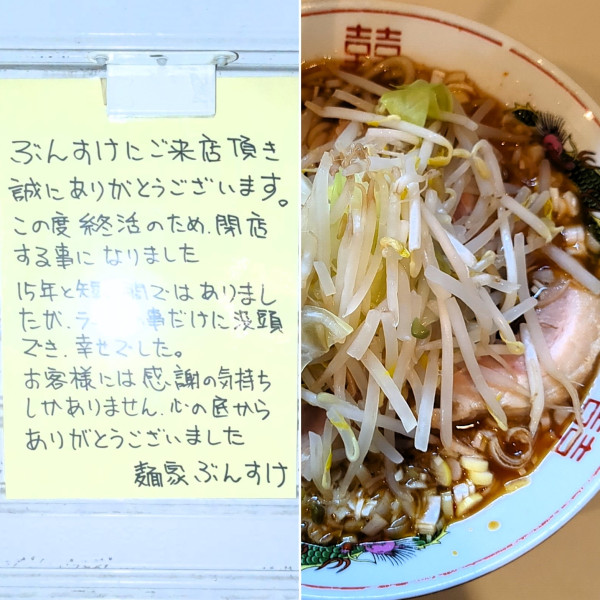 ぶんすけにご来店頂き
誠にありがとうございます。
この度終活のため、閉店
する事になりました
15年と短い間ではありまし
たが、ラ 事だけに没頭
でき、幸せでした。
お客様には感謝の気持ち
しかありません、心の底から
ありがとうございました
麺家ぶんすけ
囍
囍